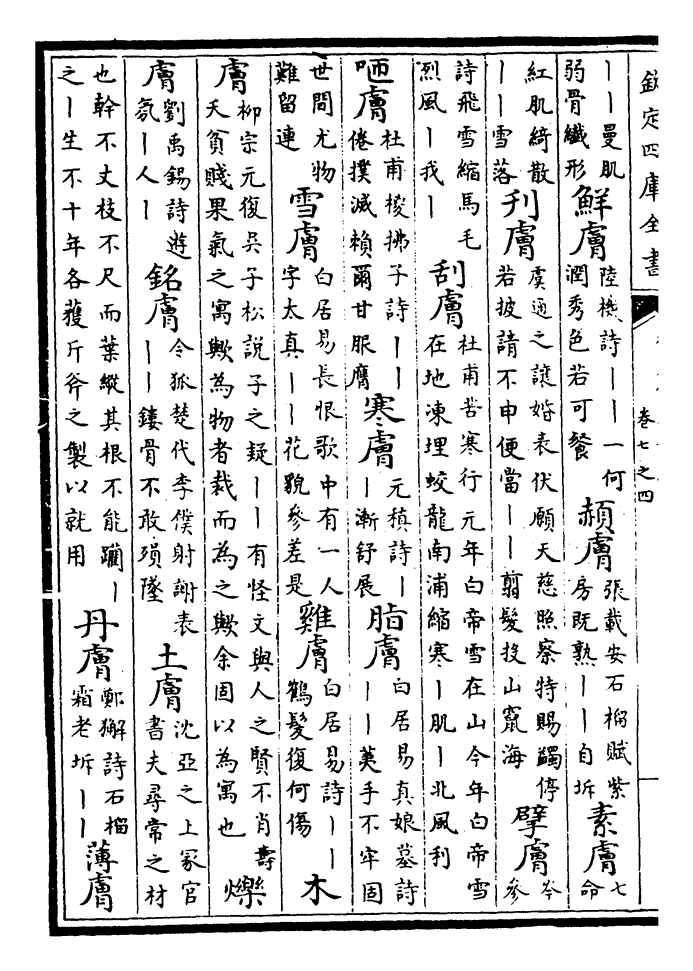 欽定四庫全書
卷七之四
丨丨曼肌
弱骨纖形
鮮膚
陸機詩丨丨一何
潤秀色若可餐
赬膚
張載安石榴賦紫
房既熟丨丨自坼
素膚
七
命
紅肌綺散
丨丨雪落
刋膚
虞通之讓婚表伏願天慈照察特賜蠲停
若披請不申便當丨丨翦髮投山竄海
擘膚
岑
參
詩飛雪縮馬毛
烈風丨我丨
刮膚
杜甫苦寒行元年白帝雪在山今年白帝雪
在地凍埋蛟龍南浦縮寒丨肌丨北風利
咂膚
杜甫椶拂子詩丨丨
倦撲滅賴爾甘服膺
寒膚
元稹詩丨
丨漸舒展
脂膚
白居易真娘墓詩
丨丨荑手不牢固
世間尤物
難留連
雪膚
白居易長恨歌中有一人
字太真丨丨花貌參差是
雞膚
白居易詩丨丨
鶴髮復何傷
木
膚
柳宗元復吳子松說子之疑丨丨有怪文與人之賢不肖壽
夭貧賤果氣之寓歟為物者裁而為之歟余固以為寓也
爍
膚
劉禹錫詩遊
氛丨人丨
銘膚
令狐楚代李僕射謝表
丨丨鏤骨不敢殞墜
土膚
沈亞之上冢官
書夫尋常之材
也幹不丈枝不尺而葉縱其根不能躪丨
之丨生不十年各獲斤斧之製以就用
丹膚
鄭獬詩石榴
霜老坼丨丨
薄膚